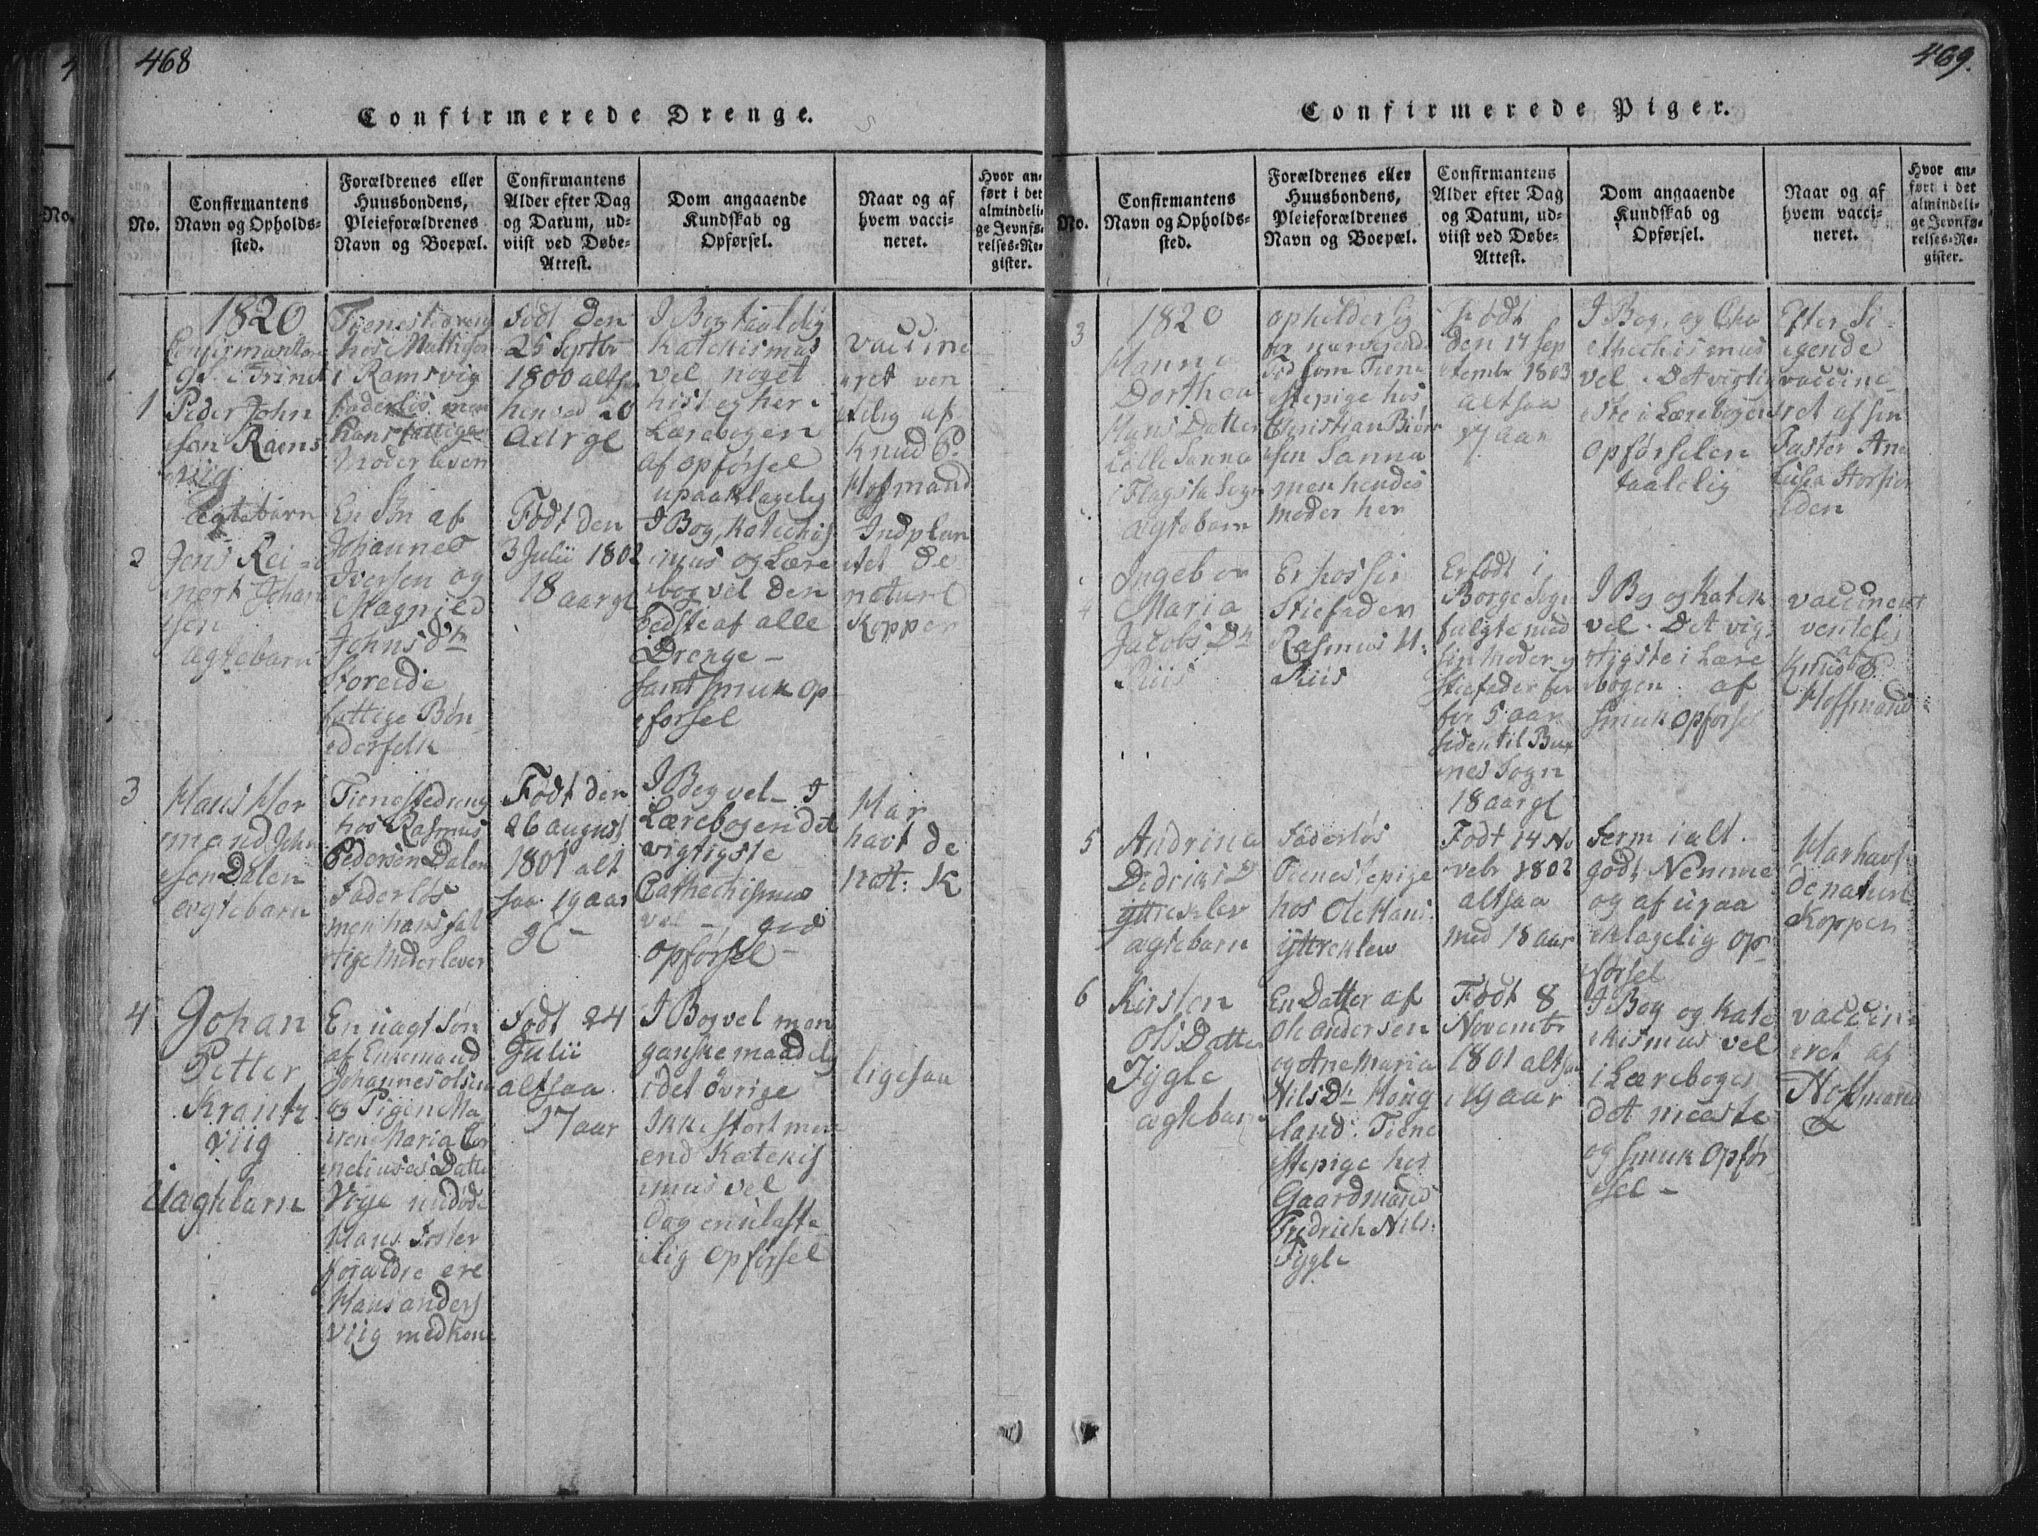 468
Confirmerede Drenge.
No.
Confirmantens
Navn og Opholds-
sted.
Forældrenes eller
Huusbondens,
Pleieforældrenes
Navn og Boepæl.
Confirmantens
Alder efter Dag
og Datum, ud-
viist ved Døbe-
Attest.
Dom angaaende
Kundskab og
Opførsel.
Naar og af
hvem vacci-
neret.
Hvor an-
ført i det
almindeli-
ge Jevnfø-
relses-Re-
gister.
1820
1
Peder John
sen Rams
viig
Ægtebarn
Tienestedreng
hos Mattis
i Ramsvig
faderløs men
hans fattige
moder lever
Født den
25 Septbr
1800 altsaa
henved 20
Aar gl
I Bog taalelig
Katekismus
vel noget
her i
Lærebogen
af opførsel
upaaklagelig
vaccine
ret
af
Knud P.
Hofmand
2
Jens Rei
nert Johan
sen
ægtebarn
En Søn af
Johannes
Iversen og
Magnild
Johns Dtr
Storeide
fattige Bøn
derfolk
Født den
3 Julii 1802
18 aar gl
I Bog, Katechis
mus og Lære
bog vel den
bedste af alle
Drenge –
samt smuk op
førsel
Indplan
tet de
naturl
Kopper
3
Hans Her
mand John
sen Dalen
ægtebarn
Tienestedreng
hos Rasmus
Pedersen Dalen
Faderløs
men hans fat
tige Moder lever
Født den
26 august
1801 alt
saa 19 aar
gl –
I Bog vel – I
Lærebogen det
vigtigste
Cathechismus
vel – god
opførsel –
Har
havt de
nat: K
4
Johan
Petter
Krantz
Viig
Uægtebarn
En uægt Søn
af Enkemand
Johannes olsen
og Pigen Ma
ren Maria Cor
nelius Datter
Viige nu døde
Hans Foster
forældre ere
Hans anders
Viig med kone
Født 24
Julii
altsaa
17 aar
I Bog vel men
ganske maadelig
i det øvrige
Ikke stort mere
end Katekis
mus vel
dog en ulaste
lig opførsel
ligesaa
469.
Confirmerede Piger.
No.
Confirmantens
Navn og Opholds-
sted.
Forældrenes eller
Huusbondens,
Pleieforældrenes
Navn og Boepæl.
Confirmantens
Alder efter Dag
og Datum, ud-
viist ved Døbe-
Attest.
Dom angaaende
Kundskab og
Opførsel.
Naar og af
hvem vacci-
neret.
Hvor an-
ført i det
almindeli-
ge Jevnfø-
relses-Re-
gister.
3
1820
Hanna
Dorthea
Hans Datter
Lille Sanna
i Flagsta Sogn
ægtebarn
opholder sig
for nærværende
Tid som Tiene
stepige hos
Christian Biørn
sen Sanna
men hendes
moder her
Født
den 17 Sep
tembr 1803
altsaa
17 aar
I Bog, og Cha
thechismus
vel. Det vigtig
ste i Lærebogen
opførselen
taalelig
Efter Si
gende
vaccine
ret af sin
Faster Ane
4
Ingebor
Maria
Jacobs Dtr
Riis
Er hos sin
Stiefader
Rasmus H:
Riis
Er født i
Borge Sogn
fulgte med
sin Moder og
Stiefader for
for 5 aar
siden til Bux
nes Sogn
18 aar gl
I Bog og Katek
vel. Det vig
tigste i Lære
bogen. af
smuk opførsel
vaccineret
af
Knud P
Hoffmand
5
Andrina
Didriks D
Yttreklev
ægtebarn
Faderløs
Tienestepige
hos Ole Hans:
Yttreklev
Født 14 No
vebr 1802
altsaa
med 18 aar
Ferm i alt.
godt Nemme
og af upaa
klagelig op
førsel
Har havt
de naturl
Kopper
6
Kirsten
Ols Datter
Tygle
ægtebarn
En Datter af
Ole andersen
og Ane Maria
Nils Dtr Houg
land. Tiene
stepige hos
Gaardmand
Fredrich Nils:
Tygle
Født 8
Novembr
1801 altsaa
19 aar
I Bog og Kate
kismus vel
i Lærebogen
det meeste
og smuk opfør
sel –
vaccin
eret af
Hoffmand